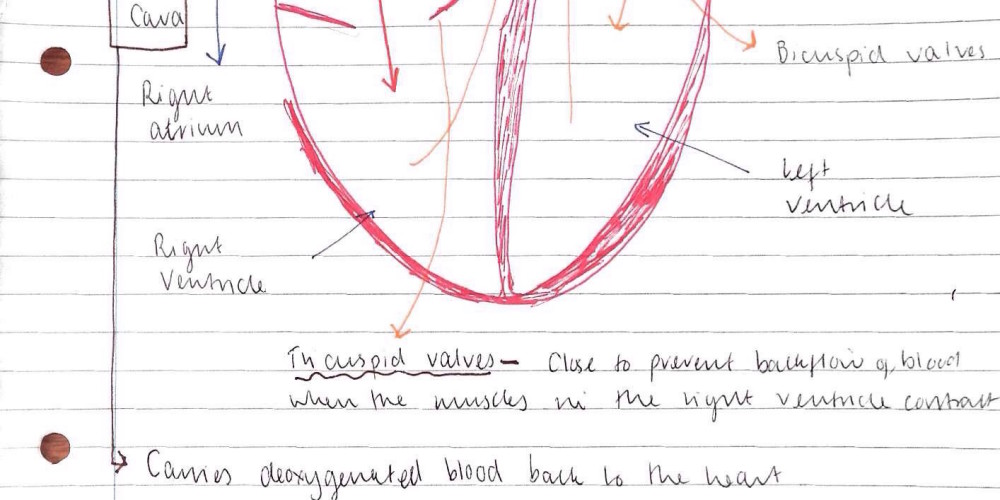 Cava
Bicuspid valves
Right
atrium
Left
ventricle
Right
Ventricle
Tricuspid valves - Close to prevent backflow of blood
when the muscles in the right ventricle contract
Carries deoxygenated blood back to the heart